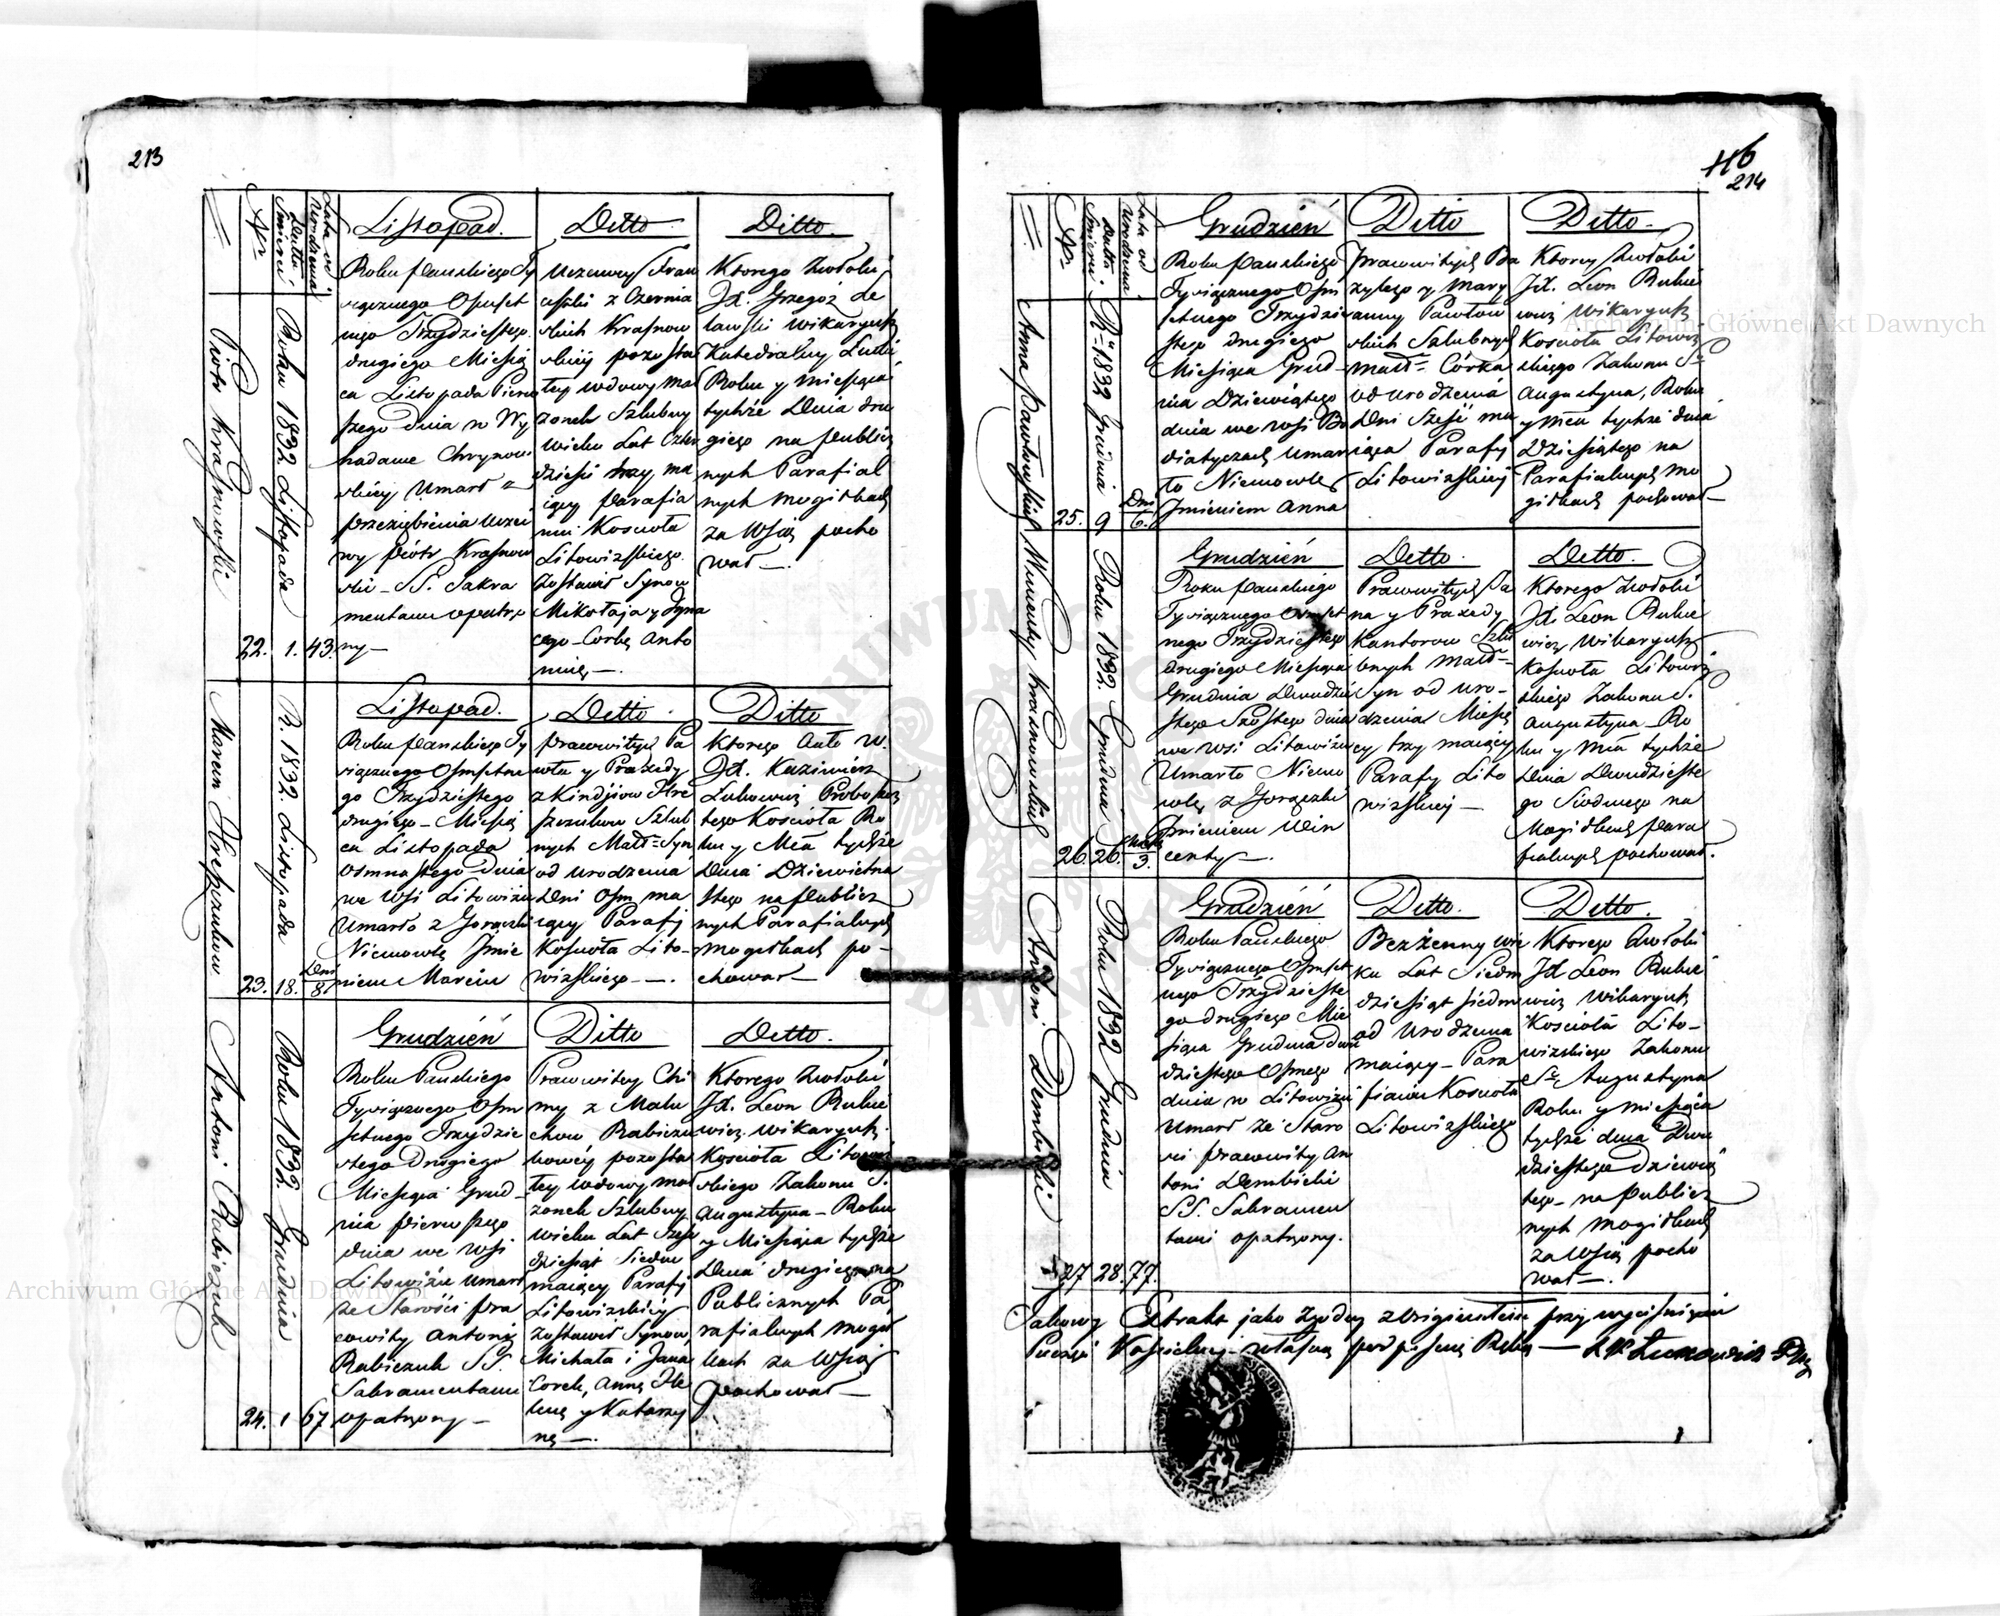 213
Nr
Datta Śmierci
Lata od Urodzenia
Listopad.
Ditto
Ditto.
Piotr Krasnowski
Roku 1832 Listopada
22.
1.
43.
Roku Pańskiego Ty
siącznego Ośmset
nego Trzydziestego
drugiego Miesią
ca Listopada Pierw
szego dnia w Wy
hadance Chrynow
skiey Umarł z
przeziębienia Uczci
wy Piotr Krasnow
ski - SS. Sakra
mentami opatrzo
ny —
Uczciwey Fran
ciszki z Czernia
skich Krasnow
skiey pozosta
łey wdowy mał
żonek Szlubny
Wieku Lat Czter
dzieści trzy ma
iący Parafia
nin Kościoła
Litowizskiego
Zostawił Synow
Mikołaja y Igna
cego - Corkę Anto
ninę —.
Ktorego Zwłoki
JX. Grzegoż Ze
lawski Wikaryusz
Katedralny Łucki
Roku y Miesiąca
tychże Dnia dru
giego na Publicz
nych Parafial
nych mogiłkach
za Wsią pocho
wał —.
Marcin Hreszczukow
R. 1832. Listopada
23.
18.
Dni
8.
Listopad.
Ditto.
Ditto
Roku Pańskiego Ty
siącznego Ośmsetne
go Trzydziestego
drugiego - Miesią
ca Listopada
Ośmnastego dnia
we Wsi Litowiżu
Umarło z Gorączki
Niemowlę Imie
niem Marcin
Prawowitych Pa
wła y Praxedy
z Kindjiow Hre
szczukow Szlub
nych Małł= Syn
od urodzenia
Dni Ośm ma
iący Parafij
Kościoła Lito-
wizskiego —.
Ktorego Ciało W.
JX. Kazimierz
Łukowicz Proboszcz
tego Kościoła Ro
ku y Mca tychże
Dnia Dziewietna
stego na Publicz
nych Parafialnych
mogiłkach po-
chował —
Antoni Rabiczuk
Roku 1832. Grudnia
24.
1
67.
Grudzień
Ditto
Ditto.
Roku Pańskiego
Tysiącznego Ośm
setnego Trzydzie
stego Drugiego
Miesiąca Grud-
nia pierwszego
dnia we Wsi
Litowiżu Umarł
ze Starości pra
cowity Antoni
Rabiczuk SS.
Sakramentami
opatrzony —
Prawowitey Chi
my z Malu
chow Rabiczu
kowey pozosta
łey wdowy mał
żonek Szlubny
Wieku Lat Sześć
dziesiąt Siedm
maiący Parafij
Litowizskiey
Zostawił Synow
Michała i Jana
Corek, Annę He
lenę y Katarzy
nę —.
Ktorego Zwłoki
JX. Leon Rukie
wicz. Wikaryusz.
Kościoła Litowiz
skiego Zakonu S.
Augustyna - Roku
y Miesiąca tychże
Dnia drugiego na
Publicznych Pa
rafialnych mogił
kach za Wsią
pochował —
116
214
Nr
Datta Śmierci.
Lata od Urodzenia
Grudzień
Ditto
Ditto.
Anna Pawłowska
R= 1832 Grudnia
25.
9
Dni
6.
Roku Pańskiego
Tysiącznego Ośm
setnego Trzydzie
stego drugiego
Miesiąca Grud-
nia Dziewiątego
dnia we Wsi Bo
diatyczach Umar
ło Niemowlę
Imieniem Anna
Prawowitych Ba
zylego y Mary
anny Pawłow
skich Szlubnych
Małł= Córka
od urodzenia
Dni Sześć ma
iąca Parafij
Litowizskiey
Ktorey Zwłoki
JX. Leon Rukie
wicz Wikaryusz
Kościoła Litowiz
skiego Zakonu S=
Augustyna, Roku
y Mca tychże dnia
Dziesiątego na
Parafialnych mo
giłkach pochował —
Roku 1832. Grudnia
26.
26.
3.
Grudzień
Ditto.
Ditto.
Roku Pańskiego
Tysiącznego Ośmset
nego Trzydziestego
Drugiego Miesiąca
Grudnia Dwudzie
stego Szostego dnia
we Wsi Litowiżu
Umarło Niemo
wlę z Gorączki
Imieniem Win
centy —.
Prawowitych Ja
na y Praxedy
Kantorow Szlu
bnych Małł=
Syn od uro-
dzenia Miesię
cy trzy maiący
Parafij Lito
wizskiey —
Ktorego Zwłoki
JX. Leon Rukie
wicz Wikaryusz
Kościoła Litowiz
skiego Zakonu S.
Augustyna - Ro
ku y Mca tychże
Dnia Dwudzieste
go Siodmego na
Mogiłkach Para
fialnych pochował.
Antoni Dembicki
Roku 1832 Grudnia
27
28.
77.
Grudzień
Ditto.
Ditto.
Roku Pańskiego
Tysiącznego Ośmset
nego Trzydzieste
go drugiego Mie
siąca Grudnia dwu
dziestego Osmego
dnia w Litowiżu
Umarł ze Staro
ści prawowity An
toni Dembicki
SS. Sakramen
tami opatrzony.
Bezżenny wie
ku Lat Siedm
dziesiąt siedm
od Urodzenia
maiący - Para
fianin Kościoła
Litowizskiego
Ktorego Zwłoki
JX Leon Rukie
wicz Wikaryusz
Kościoła Lito-
wizskiego Zakonu
S= Augustyna
Roku y miesiąca
tychże dnia Dwu
dziestego dziewią
tego - na Publicz
nych mogiłkach
za Wsią pocho
wał —.
Takowy Extrakt jako zgodny z Originałem przy wyciśnięciu
Pieczęci Kościelney własną podpisuię Ręką — XK Łukowicz
Archiwum Główne Akt Dawnych
Archiwum Główne Akt Dawnych